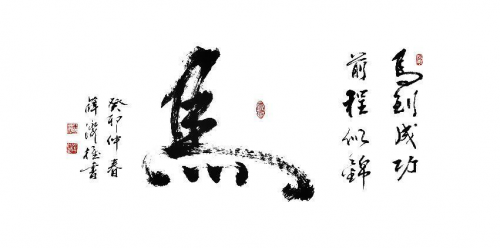 馬到成功
前程似錦
馬
癸卯仲春
薛 書